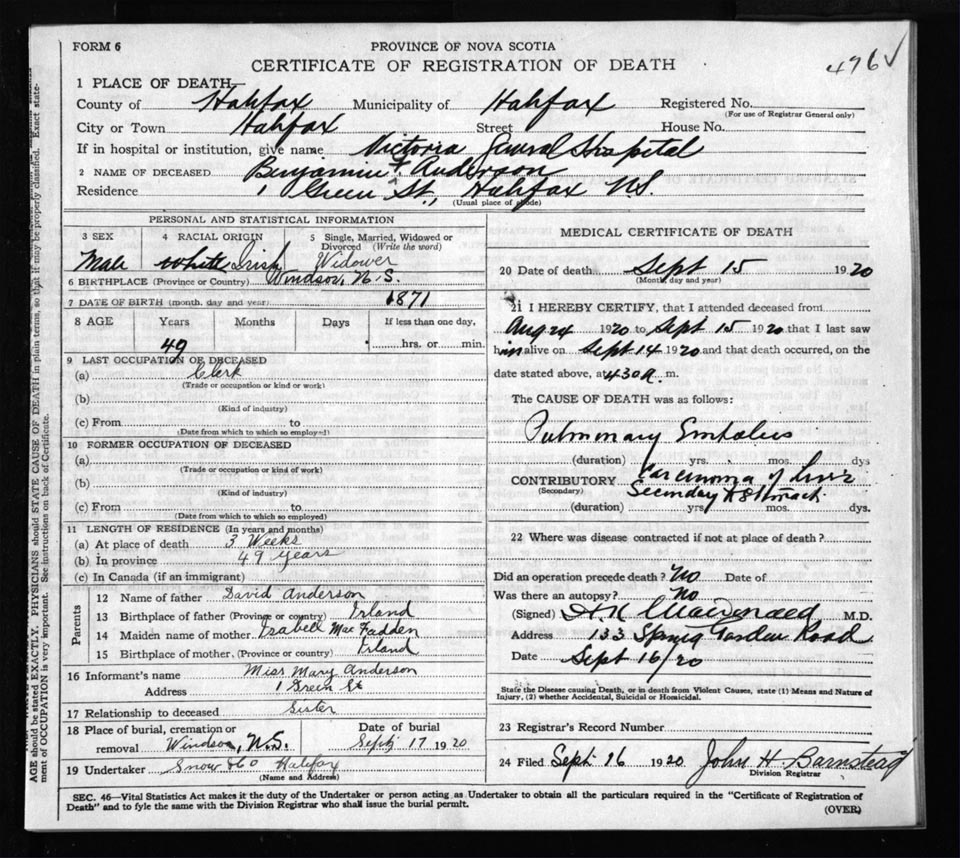 FORM 6
PROVINCE OF NOVA SCOTIA
CERTIFICATE OF REGISTRATION OF DEATH
496 ✓
1 PLACE OF DEATH—
County of Halifax Municipality of Halifax Registered No.
(For use of Registrar General only)
City or Town Halifax Street House No.
If in hospital or institution, give name Victoria General Hospital
2 NAME OF DECEASED Benjamin F. Anderson
Residence 1 Green St., Halifax N.S.
(Usual place of abode)
PERSONAL AND STATISTICAL INFORMATION
3 SEX 4 RACIAL ORIGIN 5 Single, Married, Widowed or Divorced (Write the word)
Male White Irish Widower
6 BIRTHPLACE (Province or Country) Windsor, N.S.
7 DATE OF BIRTH (month, day and year) 1871
8 AGE Years Months Days If less than one day,
49 hrs. or min.
9 LAST OCCUPATION OF DECEASED
(a) Clerk
(Trade or occupation or kind or work)
(b)
(Kind of industry)
(c) From to
(Date from which to which so employed)
10 FORMER OCCUPATION OF DECEASED
(a)
(Trade or occupation or kind of work)
(b)
(Kind of industry)
(c) From to
(Date from which to which so employed)
11 LENGTH OF RESIDENCE (In years and months)
(a) At place of death 3 Weeks
(b) In province 49 years
(c) In Canada (if an immigrant)
Parents
12 Name of father David Anderson
13 Birthplace of father (Province or country) Irland
14 Maiden name of mother Isabell MacFadden
15 Birthplace of mother, (Province or country) Irland
16 Informant's name Miss Mary Anderson
Address 1 Green St
17 Relationship to deceased Sister
18 Place of burial, cremation or removal Windsor, N.S.
Date of burial Sept 17 1920
19 Undertaker Snow & Co Halifax
(Name and Address)
MEDICAL CERTIFICATE OF DEATH
20 Date of death Sept 15 1920
(Month, day and year)
21 I HEREBY CERTIFY, that I attended deceased from
Aug 24 1920 to Sept 15 1920 that I last saw
him alive on Sept 14 1920 and that death occurred, on the
date stated above, at 4 30 A. m.
The CAUSE OF DEATH was as follows:
Pulmonary Embolus
(duration) yrs. mos. dys
CONTRIBUTORY Carcinoma of Liver
(Secondary) Secondary to Stomach
(duration) yrs. mos. dys.
22 Where was disease contracted if not at place of death?
Did an operation precede death? No Date of
Was there an autopsy? No
(Signed) H K MacDonald M.D.
Address 133 Spring Garden Road
Date Sept 16/20
State the Disease causing Death, or in death from Violent Causes, state (1) Means and Nature of
Injury, (2) whether Accidental, Suicidal or Homicidal.
23 Registrar's Record Number
24 Filed Sept 16 1920 John H. Barnstead
Division Registrar
SEC. 46—Vital Statistics Act makes it the duty of the Undertaker or person acting as Undertaker to obtain all the particulars required in the "Certificate of Registration of
Death" and to fyle the same with the Division Registrar who shall issue the burial permit.
(OVER)
AGE should be stated EXACTLY. PHYSICIANS should STATE CAUSE OF DEATH in plain terms, so that it may be properly classified. Exact state-
ment of OCCUPATION is very important. See instructions on back of Certificate.